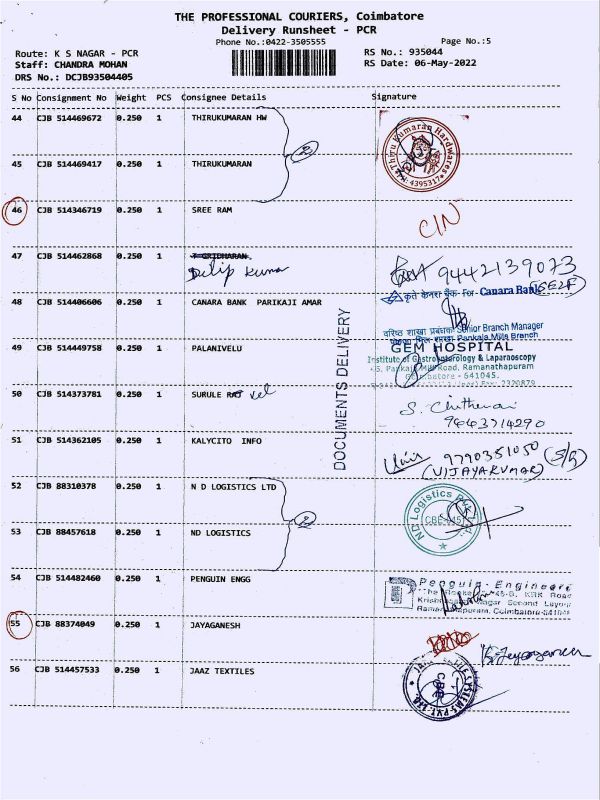 THE PROFESSIONAL COURIERS, Coimbatore
Delivery Runsheet - PCR
Phone No.:0422-3505555
Page No.:5
Route: K S NAGAR - PCR
RS No.: 935044
Staff: CHANDRA MOHAN
RS Date: 06-May-2022
DRS No.: DCJB93504405
S No Consignment No Weight PCS Consignee Details Signature
44 CJB 514469672 0.250 1 THIRUKUMARAN HW
Thiru Kumaran Hardwares
PH: 4395317
2
45 CJB 514469417 0.250 1 THIRUKUMARAN
46 CJB 514346719 0.250 1 SREE RAM
C/N
47 CJB 514462868 0.250 1 T GRIDHARAN
Dilip Kumar
9442139073
(SELF)
48 CJB 514406606 0.250 1 CANARA BANK PARIKAJI AMAR
कृते केनरा बैंक For Canara Bank
वरिष्ठ शाखा प्रबंधक Senior Branch Manager
Pankaja Mills Branch
DOCUMENTS DELIVERY
49 CJB 514449758 0.250 1 PALANIVELU
GEM HOSPITAL
Institute of Gastroenterology & Laparaoscopy
45, Pankaja Mill Road, Ramanathapuram
Coimbatore - 641045.
50 CJB 514373781 0.250 1 SURULE vel
9443714290
51 CJB 514362105 0.250 1 KALYCITO INFO
9790351050
(VIJAYAKUMAR)
52 CJB 88310378 0.250 1 N D LOGISTICS LTD
2
ND Logistics
53 CJB 88457618 0.250 1 ND LOGISTICS
54 CJB 514482460 0.250 1 PENGUIN ENGG
Penguin Engineeri
45-B, KRK Road
Nagar Second Layout
Ramanathapuram, Coimbatore-
55 CJB 88374049 0.250 1 JAYAGANESH
56 CJB 514457533 0.250 1 JAAZ TEXTILES